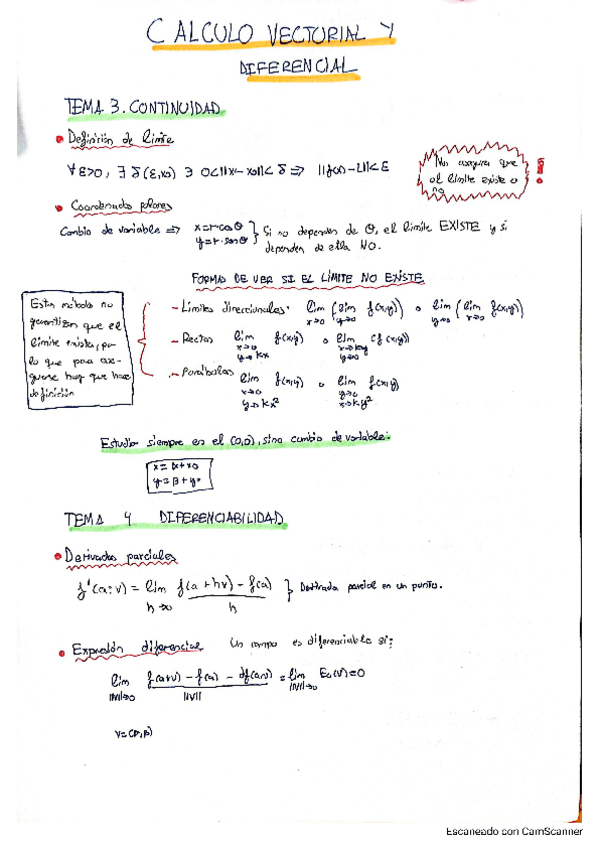 CALCULO VECTORIAL Y
DIFERENCIAL
TEMA 3. CONTINUIDAD
Definición de límite
∀ε>0, ∃ δ(ε,x0) ∋ 0<||x-x0||<δ ⇒ ||f(x)-L||<ε
No asegura que
el límite existe o
no
Coordenadas polares
Cambio de variable ⇒ x=r·cosθ
y=r·senθ } Si no dependen de θ, el límite EXISTE y si
dependen de ella NO.
FORMAS DE VER SI EL LÍMITE NO EXISTE
Estos métodos no
garantizan que el
límite exista, por
lo que para
hay que hacer
definición
- Límites direccionales: lim x→0 (lim y→0 f(x,y)) o lim y→0 (lim x→0 f(x,y))
- Rectas lim x→0 y→kx f(x,y) o lim x→ky y→0 f(x,y)
- Parábolas lim x→0 y→kx² f(x,y) o lim y→0 x→ky² f(x,y)
Estudiar siempre en el (0,0), sino cambio de variable:
x=α+x0
y=β+y0
TEMA 4 DIFERENCIABILIDAD
Derivadas parciales
f'(a;v) = lim h→0 f(a+hv)-f(a) / h } Derivada parcial en un punto.
Expresión diferencial Un campo es diferenciable si:
lim ||v||→0 f(a+v)-f(a)-df(a,v) / ||v|| = lim ||v||→0 Ea(v)=0
v=(α,β)
Escaneado con CamScanner